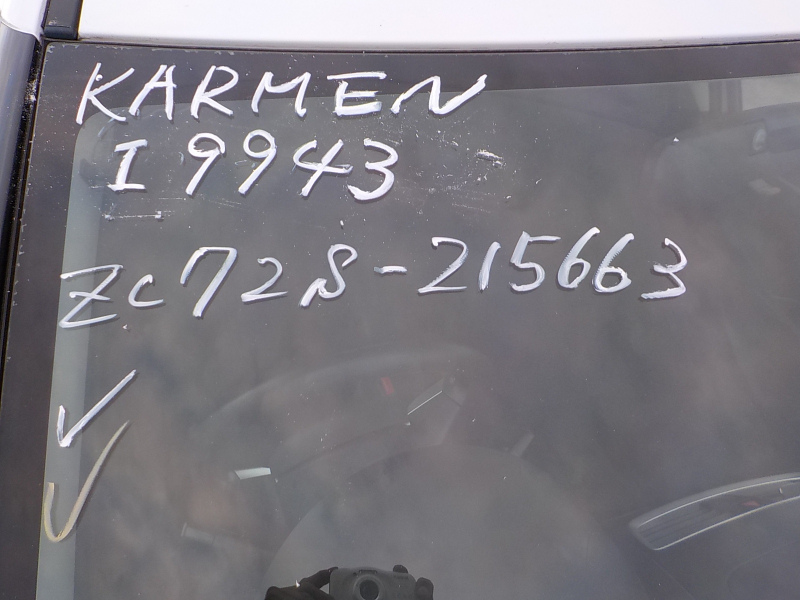 KARMEN
I9943
ZC72S-215663